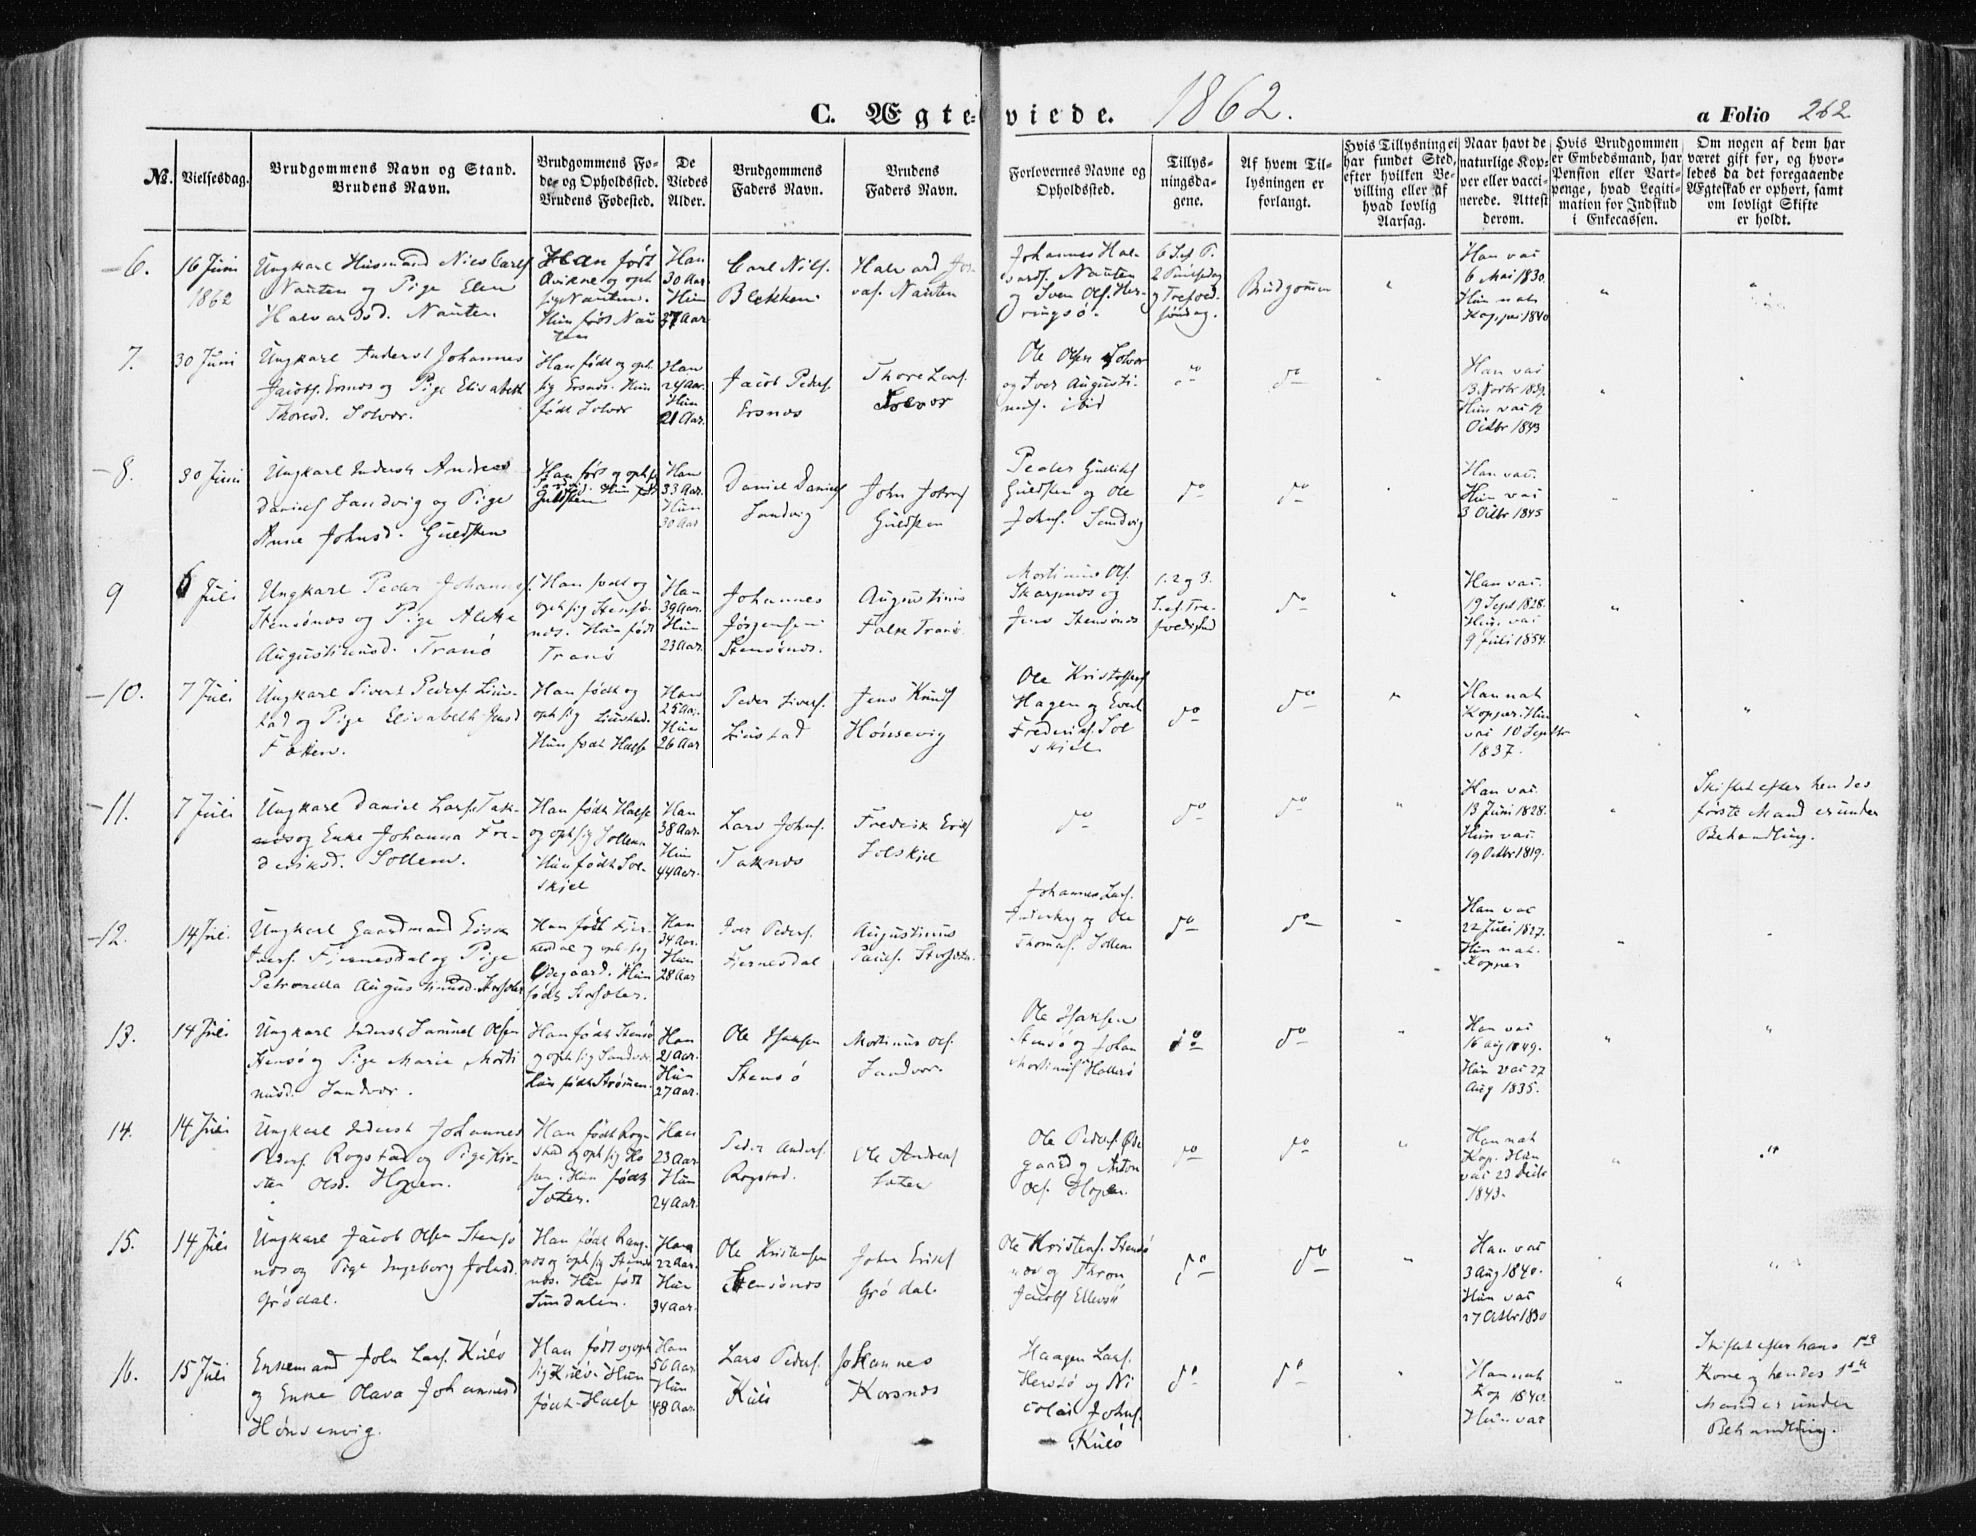 C. Ægteviede. 1862. a Folio 262
№.
Vielsesdag.
Brudgommens Navn og Stand.
Brudens Navn.
Brudgommens Fo-
de- og Opholdssted.
Brudens Fødested.
De
Viedes
Alder.
Brudgommens
Faders Navn.
Brudens
Faders Navn.
Forlovernes Navne og
Opholdssted.
Tillys-
ningsda-
gene.
Af hvem Til-
lysningen er
forlangt.
Hvis Tillysning ei
har fundet Sted,
efter hvilken Be-
villing eller af
hvad lovlig
Aarsag.
Naar havt de
naturlige Kop-
per eller vacci-
nerede. Attest
derom.
Hvis Brudgommen
er Embedsmand, har
Pension eller Vart-
penge, hvad Legiti-
mation for Indskud
i Enkecassen.
Om nogen af dem har
været gift før, og hvor-
ledes da det foregaaende
Ægteskab er ophørt, samt
om lovligt Skifte
er holdt.
6.
16 Juni
1862
Ungkarl Husmand Niels Carls.
Nauten og Pige Elen
Halvardsd. Nauten
Han født
Qvikne og oph.
sig Nauten.
Hun født Nau
ten
Han
30 Aar
Hun
27 Aar
Carl Nils.
Blekken
Halvard
Nauten
Johannes Hal-
vards. Nauten
og Sven Ols. Her-
ringsø.
6 S. ef. P.
2 Pintsedag
og Trefold.
søndag.
Brudgommen
Han vac
6 Mai 1830.
Hun nat.
Kopper 1840
7.
30 Juni
Ungkarl Inderst Johannes
Jacobs. Ersnes og Pige Elisabeth
Thoresd. Solvor.
Han født og oph.
sig Ersnes. Hun
født Solvor
Han
24 Aar.
Hun
21 Aar.
Jacob Peders.
Ersnes
Thore Lars.
Solvor
Ole Olsen Solvor
og Iver Augusti-
nus. ibid
do
do
Han vac
Hun vac
Octbr 1843
8.
30 Juni
Ungkarl Inderst Andreas
Daniels Sandvig og Pige
Anne Johnsd. Guldsten
Han født og oph. sig
Sandvig. Hun født
Guldsten
Han
33 Aar.
Hun
30 Aar
Daniel Daniels
Sandvig
John Johns
Guldsten
Peder Gulliks
Guldsten og Ole
Johns. Sandvig
do
do
Han vac.
Hun vac
3 Octbr 1845
9
6 Juli
Ungkarl Peder Johannes.
Stensønes og Pige Alette
Augustinusd. Tranø
Han født og
oph. sig Stensø-
nes. Hun født
Tranø
Han
39 Aar.
Hun
23 Aar.
Johannes
Jørgensen
Stensønes.
Augustinus
Falk Tranø.
Mortinus Ols.
Skarpnes og
Jens Stensønes
1. 2 og 3.
S. ef. Tre-
foldighed
do
Han vac.
19 Sept 1828.
Hun vac
9 Juli 1854.
10.
7 Juli
Ungkarl Sivert Peders. Lius-
tad og Pige Elisabeth Jensd
Han født og
oph. sig Liustad.
Hun født Halse
Han
25 Aar.
Hun
26 Aar
Peder Sivers.
Liustad
Jens Knuds
Hønsevig
Ole Kristoffers
Hagen og Evert
Frederiks. Sol
skjel
do
do
Han nat
Kopper. Hun
vac 10 Septbr
1837.
11.
7 Juli
Ungkarl Daniel Lars. Tak-
nes og Enke Johanna Fre-
deriksd. Sollem.
Han født Halse
og oph. sig Sollem
Hun født Sol-
skjel
Han
38 Aar.
Hun
44 Aar.
Lars Johns.
Taknes
Frederik Eriks
Solskjel
do
do
do
Han vac.
13 Juni 1828.
Hun vac.
19 Octbr 1819.
Skiftet efter hendes
første Mand er under
Behandling.
12.
14 Juli
Ungkarl Gaardmand
Ivers. Fjernesdal og Pige
Petronella Augustinusd. Storsæter
Han født Fjer-
nesdal og oph. sig
Ødegaard. Hun
født Storsæter.
Han
34 Aar.
Hun
28 Aar
Iver Peders.
Fjernesdal
Augustinus
Pauls. Storsæter
Johannes Lars.
og Ole
Thomas. Sollem
do
do
Han vac
22 Juli 1827.
Hun nat.
Kopper
13.
14 Juli
Ungkarl Inderst Samuel Olsen
Stensø og Pige Marie Morti
nusd. Sandvor.
Han født Stensø
og oph. sig Sandvor.
Hun født Strømen.
Han
21 Aar.
Hun
27 Aar.
Ole Isaksen
Stensø
Mortinus Ols.
Sandvor.
Ole Isaksen
Stensø og Johan
Mortinus Hallersø
do
do
Han vac
16 aug 1849.
Hun vac 27
Aug 1835.
14.
14 Juli
Ungkarl Inderst Johannes
Peders. Rogstad og Pige Kir-
sten Olsd. Hopen.
Han født Rog-
stad og oph. sig Ho
pen. Hun født
Sæter.
Han
23 Aar
Hun
24 Aar.
Peder Anders.
Rogstad.
Ole Andreas
Sæter
Ole Peders. Øde
gaard og Anton
Ols. Hopen.
do
do
Han nat
Kop. Hun
vac 23 Decbr
1843.
15.
14 Juli
Ungkarl Jacob Olsen Stensø
nes og Pige Ingeborg Johnsd.
Grødal.
Han født Rang-
nes og oph. sig Stensø
nes. Hun født
Sundalen.
Han
22 Aar.
Hun
34 Aar.
Ole Kristensen
Stensønes
John Eriks
Grødal.
Ole Kristens. Stensø
nes og Thron
Jacobs Ellevsø
do
do
Han vac
3 Aug 1840.
Hun vac
27 Octbr 1830
16.
15 Juli
Enkemand John Lars. Kulø
og Enke Olava Johannesd
Hønsenvig.
Han født og oph
sig Kulø. Hun
født Halse
Han
56 Aar.
Hun
48 Aar.
Lars Peders.
Kulø
Johannes
Korsnes
Haagen Lars.
Hersø og Ni
colai Johns.
Kulø
do
do
Han nat
Kop 1840.
Hun var
Skiftet efter hans 1ste
Kone og hendes 1ste
Mand er under
Behandling.